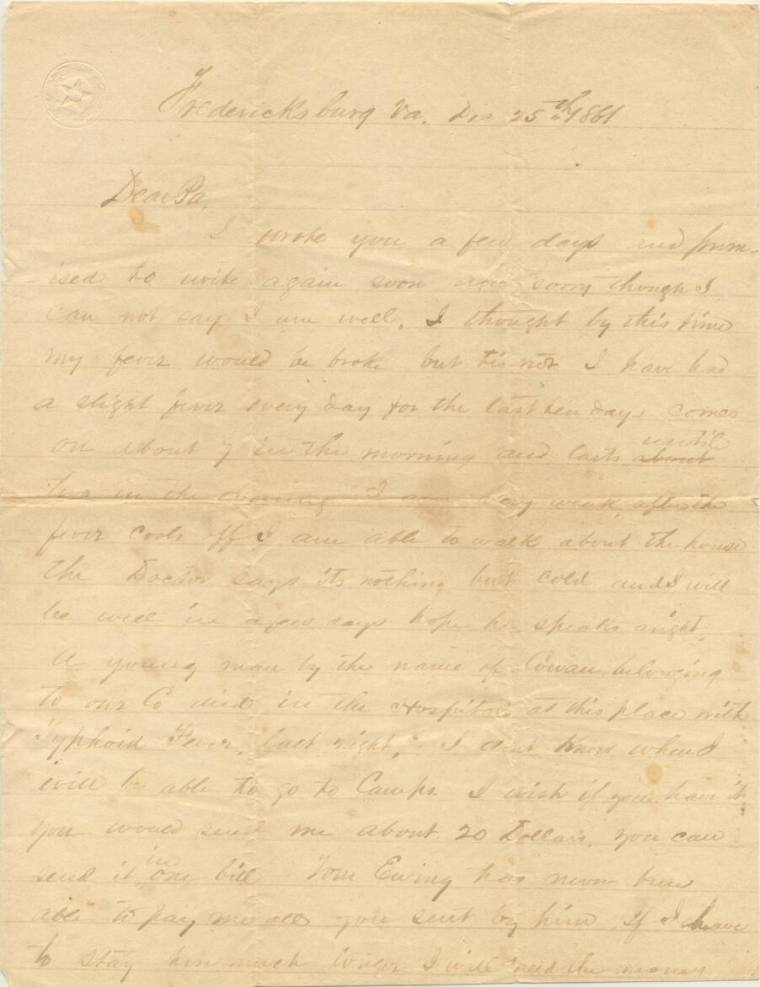 Fredericksburg Va. Dec 25th 1861
Dear Pa,
I wrote you a few days and prom-
ised to write again soon am sorry though I
can not say I am well. I thought by this time
my fever would be broke but tis not I have had
a slight fever every day for the last ten days comes
on about 7 in the morning and lasts about until
in the evening I am very weak after the
fever cools off I am able to walk about the house
the Doctor says its nothing but cold and I will
be well in a few days hope he speaks aright.
A young man by the name of Cowan belonging
to our Co died in the Hospital at this place with
Typhoid Fever, last night. I dont know when I
will be able to go to Camp. I wish if you have it
you would send me about 20 Dollars. you can
send it in one bill Tom Ewing has never been
able to pay me all you sent by him if I have
to stay here much longer I will need the money